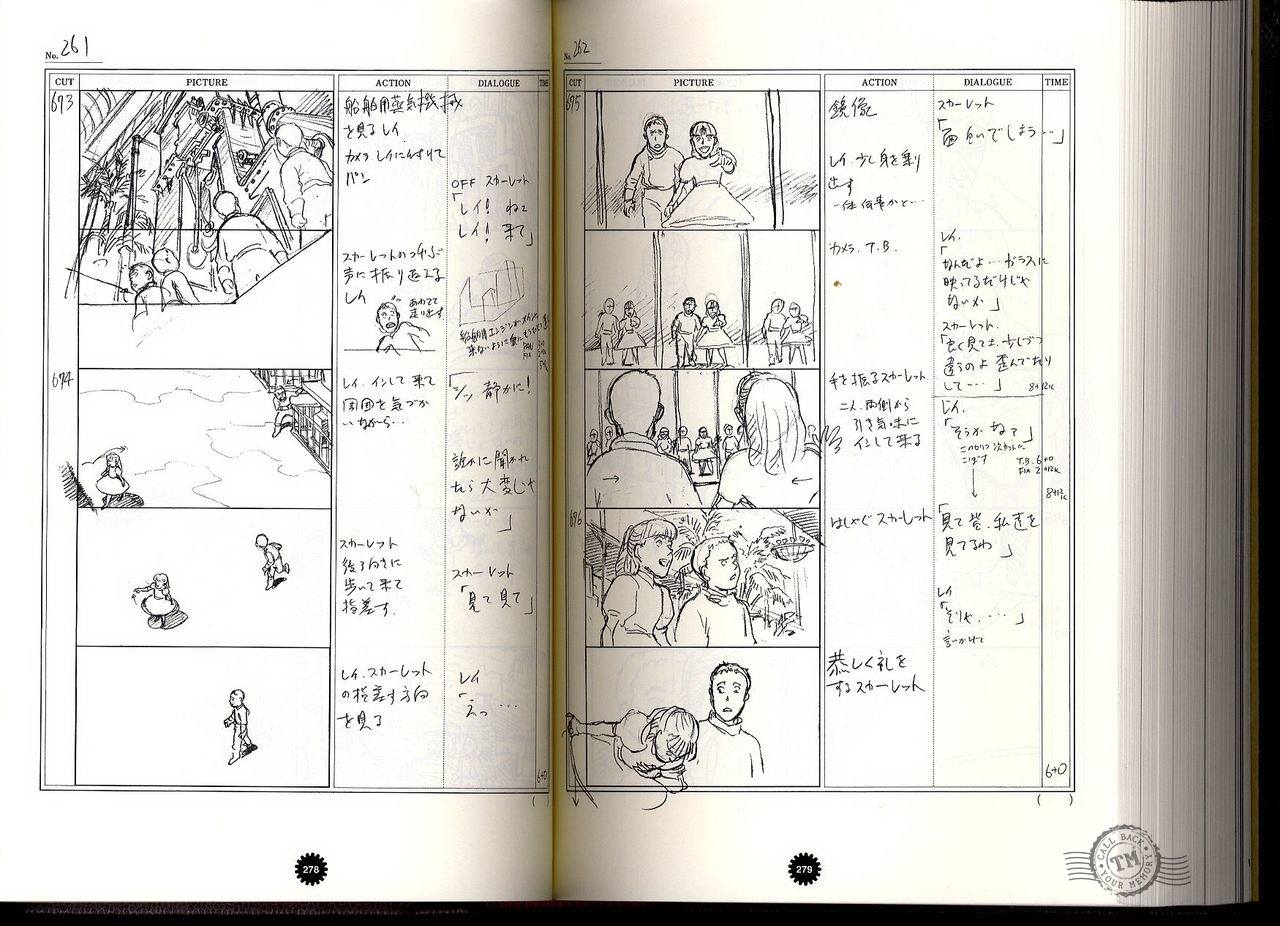 No. 261
CUT PICTURE ACTION DIALOGUE TIME
673
船舶用蒸気機械
を見るレイ
カメラ レイに付けて
パン
OFF スカーレット
「レイ! ねえ
レイ! 来て」
スカーレットの呼ぶ
声に振り返える
レイ
あわてて
走り出す
674
レイ.インして来て
周囲を気づか
いながら…
「シッ 静かに!
誰かに聞かれ
たら大変じゃ
ないか」
スカーレット
後ろ向きに
歩いて来て
指差す.
スカーレット
「見て見て」
レイ.スカーレット
の指差す方向
を見る
レイ
「えっ…
6+0
( )
278
No. 262
CUT PICTURE ACTION DIALOGUE TIME
675
鏡像
レイ.少し身を乗り
出す
スカーレット
カメラ.T.B.
レイ.
「なんだよ…ガラスに
映ってるだけじゃ
ないか」
スカーレット.
「よく見てよ.少しづつ
違うのよ 歪んでたり
して…」
8+12k
手を振るスカーレット
二人.両側から
引き気味に
インして来る
レイ.
「そうかなァ」
T.B. 6+0
FIX 2+12k
8+12k
676
はしゃぐスカーレット
「見て皆.私達を
見てるわ」
レイ
「そりゃ.…」
言いかけて
恭しく礼を
するスカーレット
6+0
( )
279
CALL BACK
TM
YOUR MEMORY